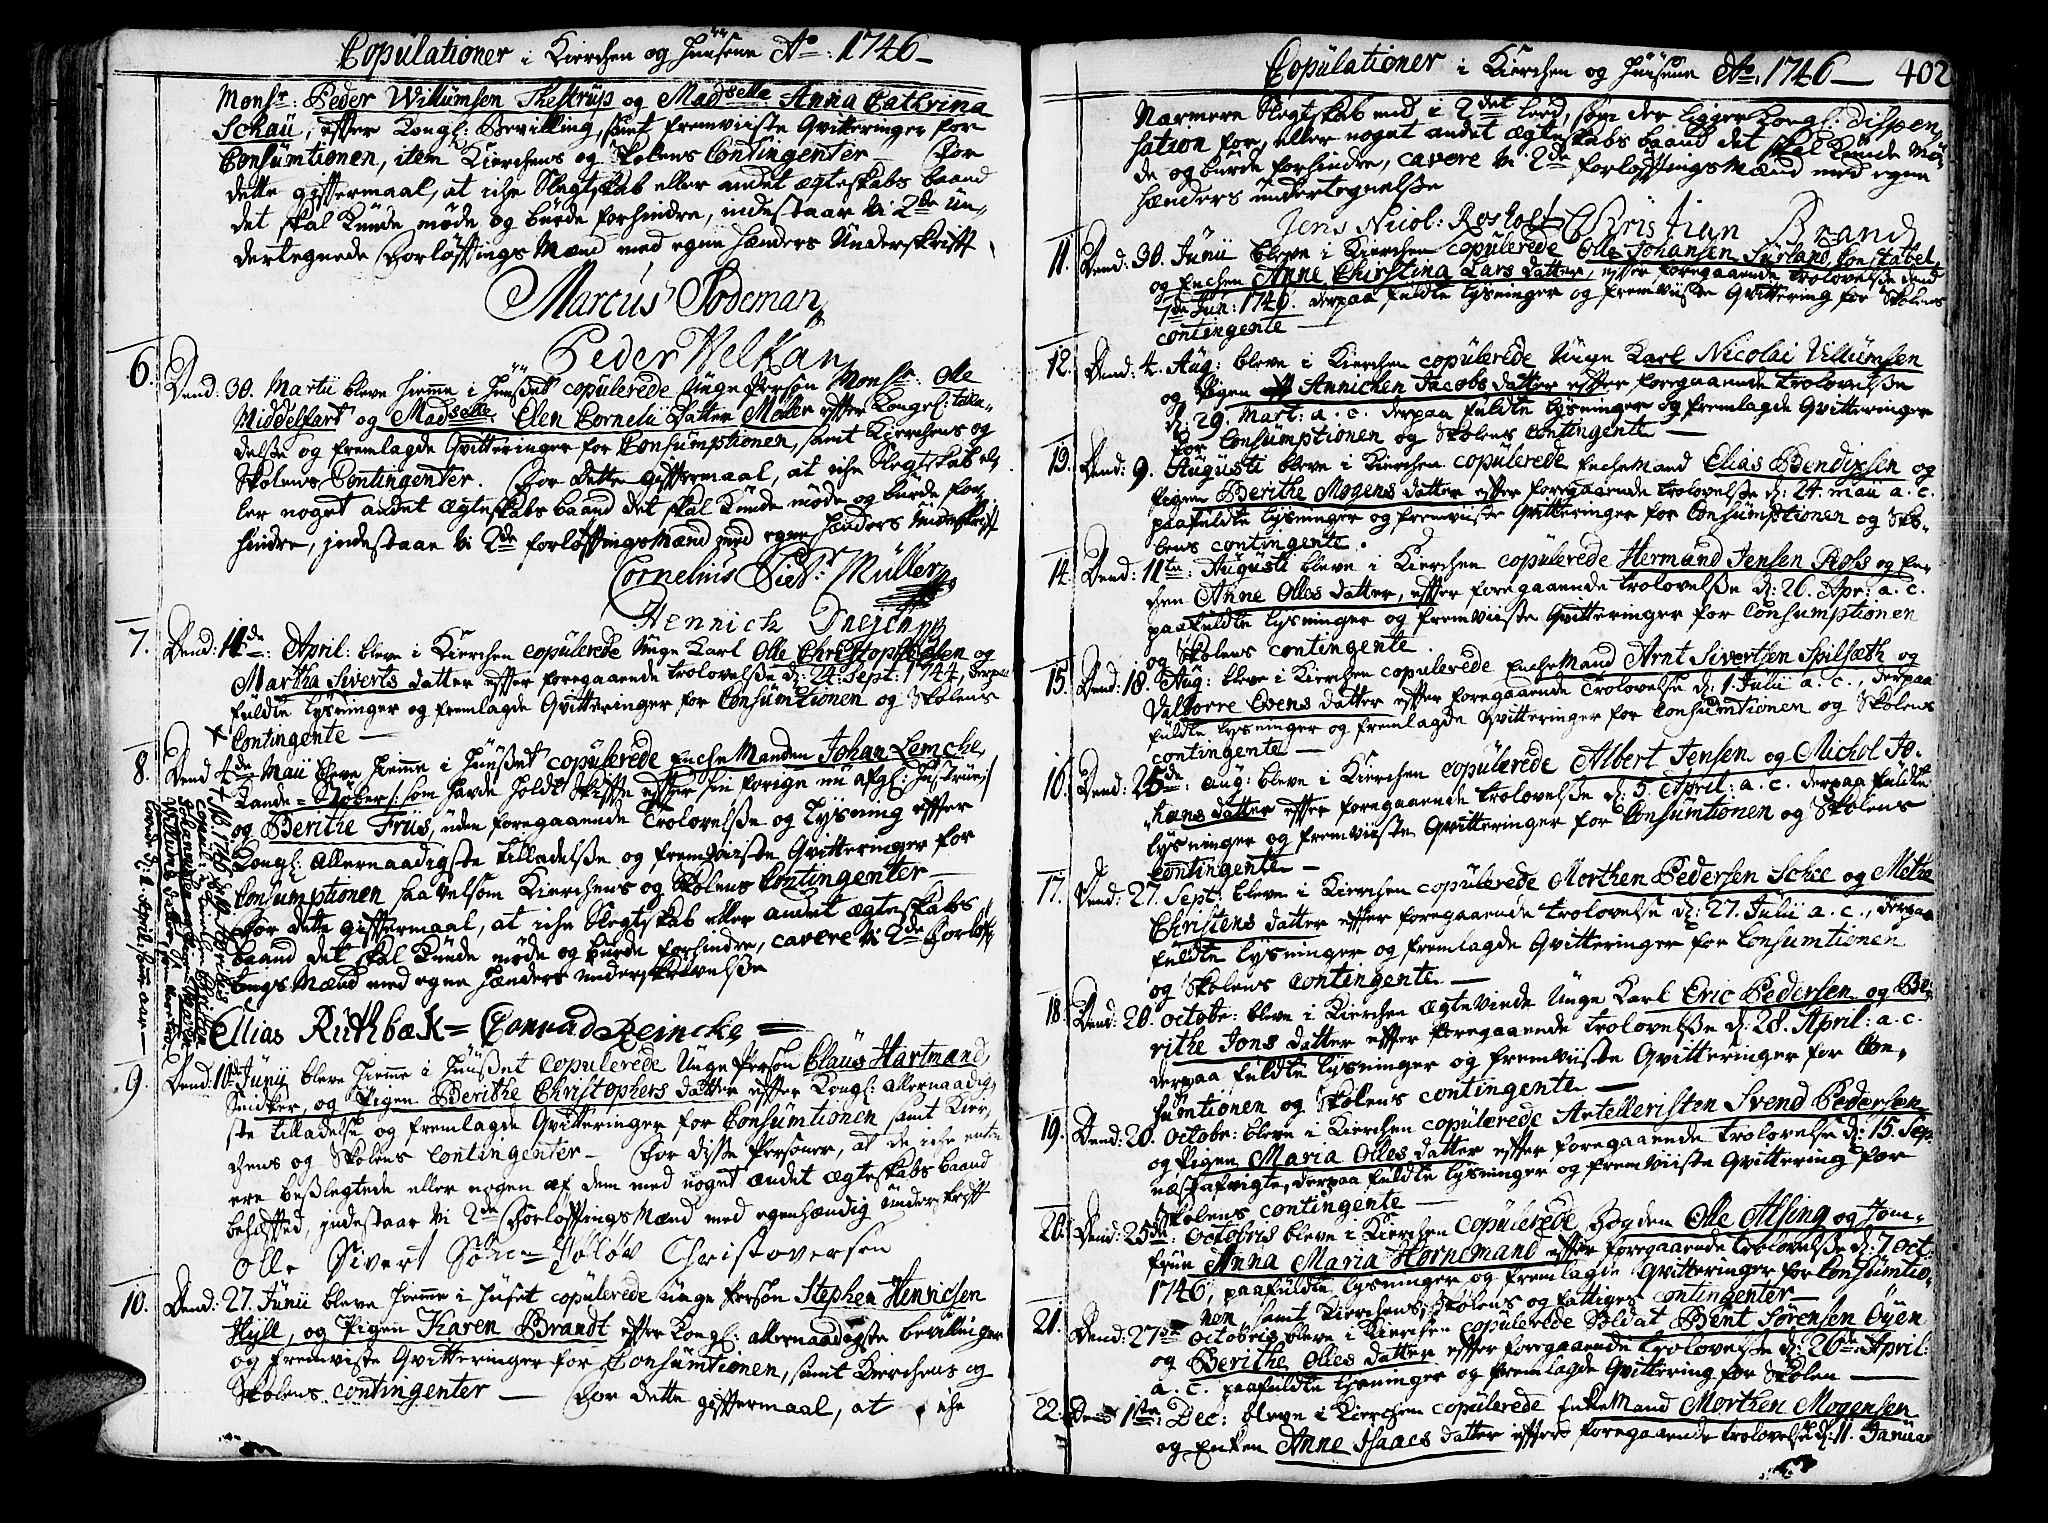 Copulationer i Kierchen og Huusene Ao: 1746 –
Monsr: Peder Willumsen Thestrup og Madselle Anna Cathrina
Schau, efter Kongl: Bevilling, samt fremviiste Qvitteringer for
Consumtionen, item Kierchens og Skolens Contingenter – For
dette gifftermaal, at iche Slegtskab eller andet ægteskabs baand
det skal kunde møde og burde forhindre, indestaar vi 2de un-
dertegnede Forløfftings Mænd med egne hænders Underskrifft
Marcus Podeman
Peder Welkan
6. Dend: 30. Martii bleve hiemme i Huuset copulerede Unge Persohn Monsr: Olle
Middelfart og Madselle Elen Cornelii datter Moler efter Kongl: tilla-
delsse og fremlagde Qvitteringer for Consumptionen, samt Kierchens og
Skolens Contingenter. For dette gifftermaal, at iche Slegtskab el-
ler noget andet ægteskabs baand det skal kunde møde og burde for-
hindre, indestaar vi 2de forløfftings Mænd med egne hænders Underskrifft
Cornelius Müller
Hennich
7. Dend: 14de: April: bleve i Kierchen copulerede Unge Karl Olle Christophersen og
Martha Siverts datter efter foregaaende trolovelsse d: 24. Sept: 1744, derpaa
fuldte lysninger og fremlagde Qvitteringer for Consumtionen og Skolens
Contingente –
8. Dend 4de Maii bleve hiemme i Huuset copulerede Enche Manden Johan Lemche
Kande-Støber som hafde holdt Skiffte efter sin forige nu afgl: Hustrue
og Berithe Friis, uden foregaaende Trolovelsse og Lysning efter
Kongl: allernaadigste tilladelsse og fremviiste Qvitteringer for
Consumptionen saavelsom Kierchens og Skolens Contingenter –
For dette gifftermaal, at iche Slegtskab eller andet ægteskabs
baand det skal kunde møde og burde forhindre, cavere vi 2de Forløff-
tings Mænd med egne hænders underskrivelsse
Ellias Ruthbæk = Conrad Reincke =
9. Dend: 10de Junii bleve hiemme i Huuset copulerede Unge Persohn Claus Hartmand
Snidker, og Pigen Berithe Christophers datter efter Kongl: allernaadig-
ste tilladelse og fremlagde Qvitteringer for Consumtionen samt Kier-
chens og Skolens Contingenter – For disse Personer, at de iche enten
ere besslegtede eller nogen af dem med noget andet ægteskabs baand
behæffted, indestaar vi 2de Forløfftings Mænd med egenhændig Underskrifft
Olle Sivert Christoversen
10. Dend: 27. Junii bleve hiemme i Huset copulerede Unge Persohn Stephen Henricsen
Hyll, og Pigen Karen Brandt efter Kongl: allernaadigste bevillinger
og fremviste Qvitteringer for Consumtionen, samt Kierchens og
Skolens contingenter – For dette gifftermaal, at iche
Copulationer i Kierchen og Huusene Ao: 1746 – 402
Nærmere Slegtskab end i 2det leed, som der ligger Kongl: Dispen-
sation for, eller noget andet ægteskabs baand det skal kunde mø-
de og burde forhindre, cavere vi 2de forløfftings Mænd med egne
hænders undertegnelsse
Jens Nicol: Rosholt Christian Brand
11. Dend: 30. Junii bleve i Kierchen copulerede Olle Johansen Surland, Constabel,
og Enchen Anne Chirstina Lars datter, efter foregaaende trolovelsse dend
7de Jun: 1746. derpaa fuldte lysninger og fremviiste Qvittering for Skolens
contingente –
12. Dend: 4. Aug: bleve i Kierchen copulerede Unge Karl Nicolai Villumsen
og Pigen Annichen Jacobs datter efter foregaaende trolovelsse
d: 29. Mart: a. c. derpaa fuldte lysninger og fremlagde Qvitteringer
for Consumptionen og Skolens contingente –
13. Dend: 9. Augusti bleve i Kierchen copulerede Enche Mand Elias Bendixsen og
Pigen Berithe Mogens datter efter foregaaende trolovelsse d: 24. Maii a. c.
paafuldte lysninger og fremviiste Qvitteringer for Consumptionen og Sko-
lens contingente.
14. Dend: 11te: Augusti bleve i Kierchen copulerede Hermand Jensen Ross og En-
chen Anne Olles datter, efter foregaaende trolovelsse d: 26. Apr: a. c.
paafuldte lysninger og fremviiste Qvitteringer for Consumptionen
og Skolens contingente.
15. Dend: 18. Aug: bleve i Kierchen copulerede Enche Mand Arnt Sivertsen Spilsæth og
Valborre Evens datter efter foregaaende Trolovelsse d: 1. Julii a. c., derpaa
fuldte lysninger og fremlagde Qvitteringer for Consumtionen og Skolens
contingente –
16. Dend: 25de: aug: bleve i Kierchen copulerede Albert Jensen og Michol Jo-
hans datter efter foregaaende trolovelsse d: 5. April: a. c. derpaa fuldte
lysninger og fremviiste Qvitteringer for Consumtionen og Skolens
contingente –
17. Dend: 27. Sept: bleve i Kierchen copulerede Morthen Pedersen Schee og Mette
Christens datter efter foregaaende trolovelse d: 27. Julii a. c., derpaa
fuldte lysninger og fremlagde Qvitteringer for Consumtionen
og Skolens contingente –
18. Dend: 20. octobr: bleve i Kierchen ægteviede Unge Karl Eric Pedersen og Be-
rithe Jons datter efter foregaaende trolovelsse d: 28. April: a. c.
derpaa fuldte lysninger og fremviiste Qvitteringer for Con-
sumtionen og Skolens contingente –
19. Dend: 20. octobr: bleve i Kierchen copulerede Artelleristen Svend Pedersen
og Pigen Maria Olles datter efter foregaaende trolovelsse d: 15. Sep:
næstafvigte, derpaa fuldte lysninger og fremviiste Qvittering for
Skolens contingente –
20. Dend: 25de: octobris bleve i Kierchen copulerede Fogden Olle Alsing og Jom-
frue Anna Maria Hornemand efter foregaaende trolovelsse d: 7 oct:
1746, paafuldte lysninger og fremlagde Qvitteringer for Consumtio-
nen, samt Kierchens, Skolens og fattiges contingenter –
21. Dend: 27de octobris bleve i Kierchen copulerede Soldat Bent Sörensen Öyen
og Berithe Olles datter efter foregaaende trolovelsse d: 26de April:
a. c. paafuldte lysninger og fremlagde Qvittering for Skolen –
22. Dend 1ste: Dec: bleve i Kierchen copulerede EnkeMand Morthen Mogensen
og Enken Anne Isaacs datter efter foregaaende trolovelsse d: 11. Januar